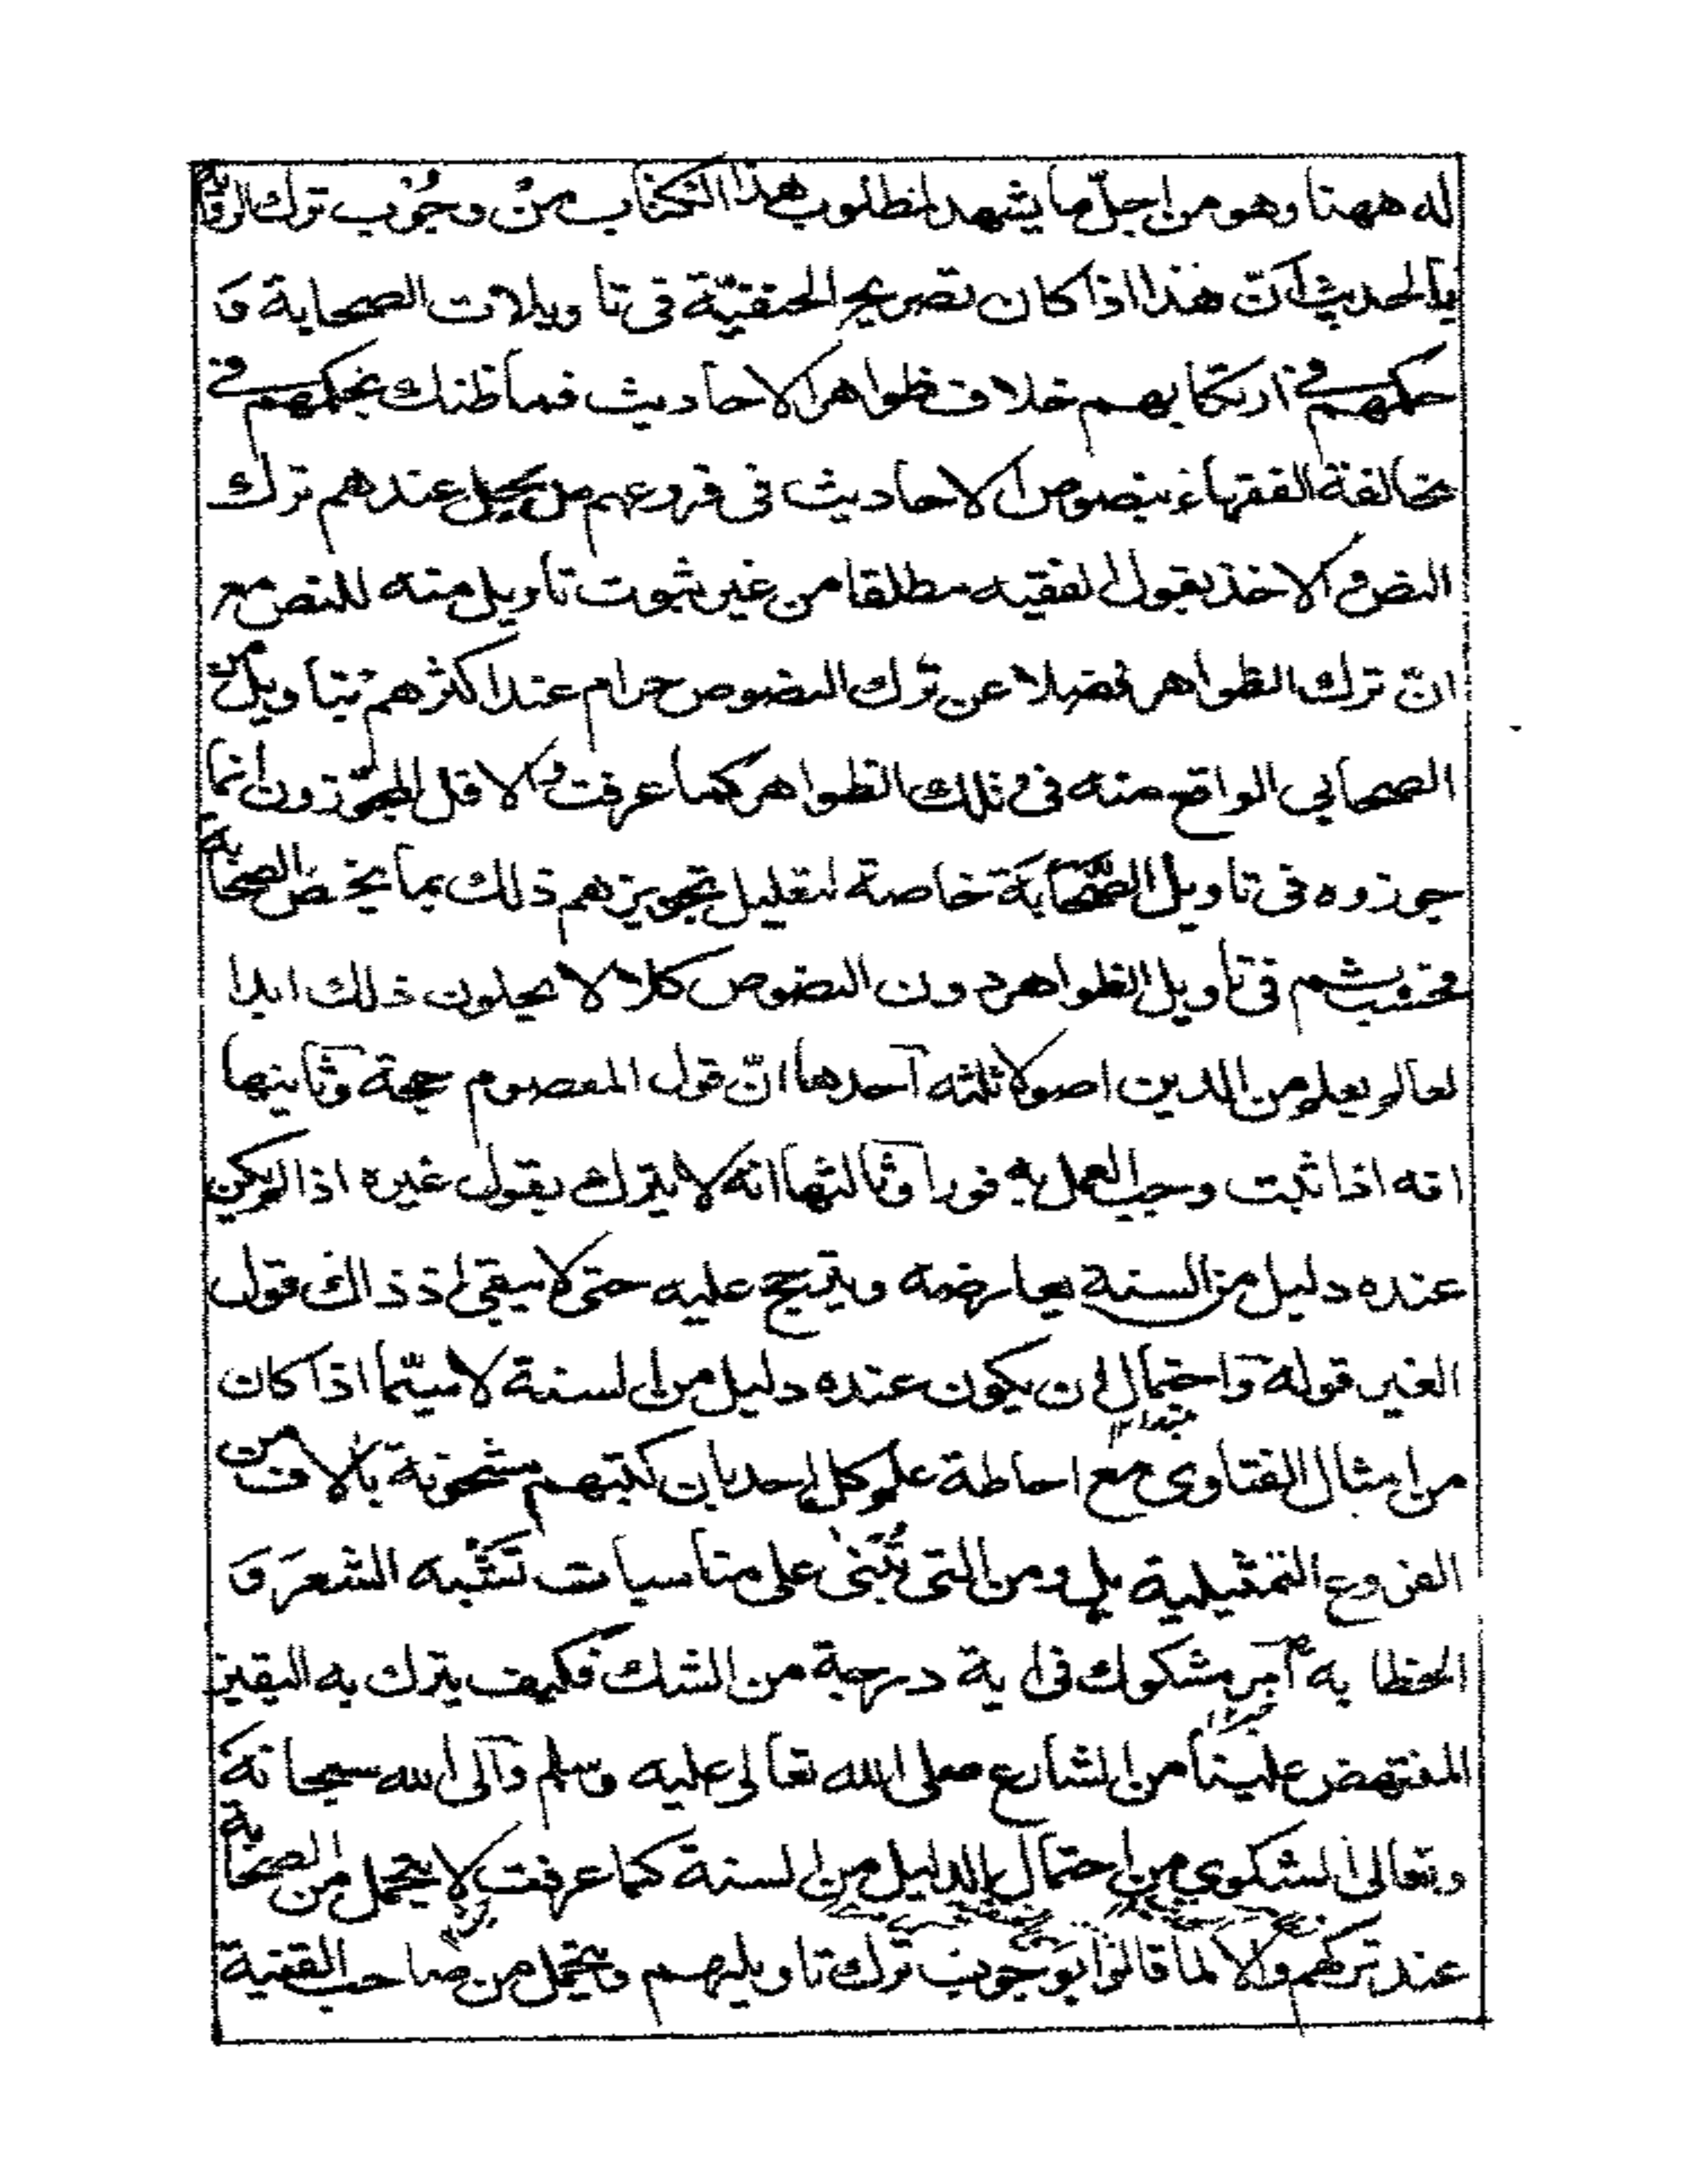 له ههنا وهو من اجلّ ما يشهد لمطلوب هذا الكتاب من وجُوب ترك الرواية
بالحديث انّ هذا اذا كان تصريح الحنفيّة فى تاويلات الصحابة و
حكمهم فى ارتكابهم خلاف ظواهر الاحاديث فما ظنك بحكمهم فى
مخالفة الفقهاء بنصوص الاحاديث فى فروعهم هل يحل عندهم ترك
النص والاخذ بقول الفقيه مطلقا من غير ثبوت تاويل منه للنص مع
انّ ترك الظواهر فضلا عن ترك النصوص حرام عند اكثرهم بتاويل من
الصحابى الواقع منه فى تلك الظواهر كما عرفت والاقل المجوّزون انما
جوزوه فى تاويل الصّحابة خاصة لتعليل تجويزهم ذلك بما يخص الصحابة
فى تاويل الظواهر دون النصوص كلا لا يحلون ذلك ابدا
لما لو يعلم من الدين اصولا ثلثه آحدها انّ قول المعصوم حجة وثانيها
انه اذا ثبت وجب العمل به فورا وثالثها انه لا يترك بقول غيره اذا لم يكن
عنده دليل من السنة يعارضه ويترجح عليه حتى لا يبقى اذ ذاك قول
الغير قوله واحتمال ان يكون عنده دليل من السنة لا سيّما اذا كان
من امثال الفتاوى مع احاطة علم كل احد بان كتبهم مشحونة بالاف من
الفروع التمثيلية بل ومن التى تُبنى على مناسبات تشبه الشعر و
الخطابه آمر مشكوك فى اية درجة من الشك فكيف يترك به اليقين
المنتهض علينا من الشارع صلى الله تعالى عليه وسلم وآلى الله سبحانه
وتعالى الشكوى من احتمال الدليل من السنة كما عرفت لا يحتمل من الصحابة
عند تركهم والا لما قالوا بوجوب ترك تاويلهم ويحتمل من صاحب القنية